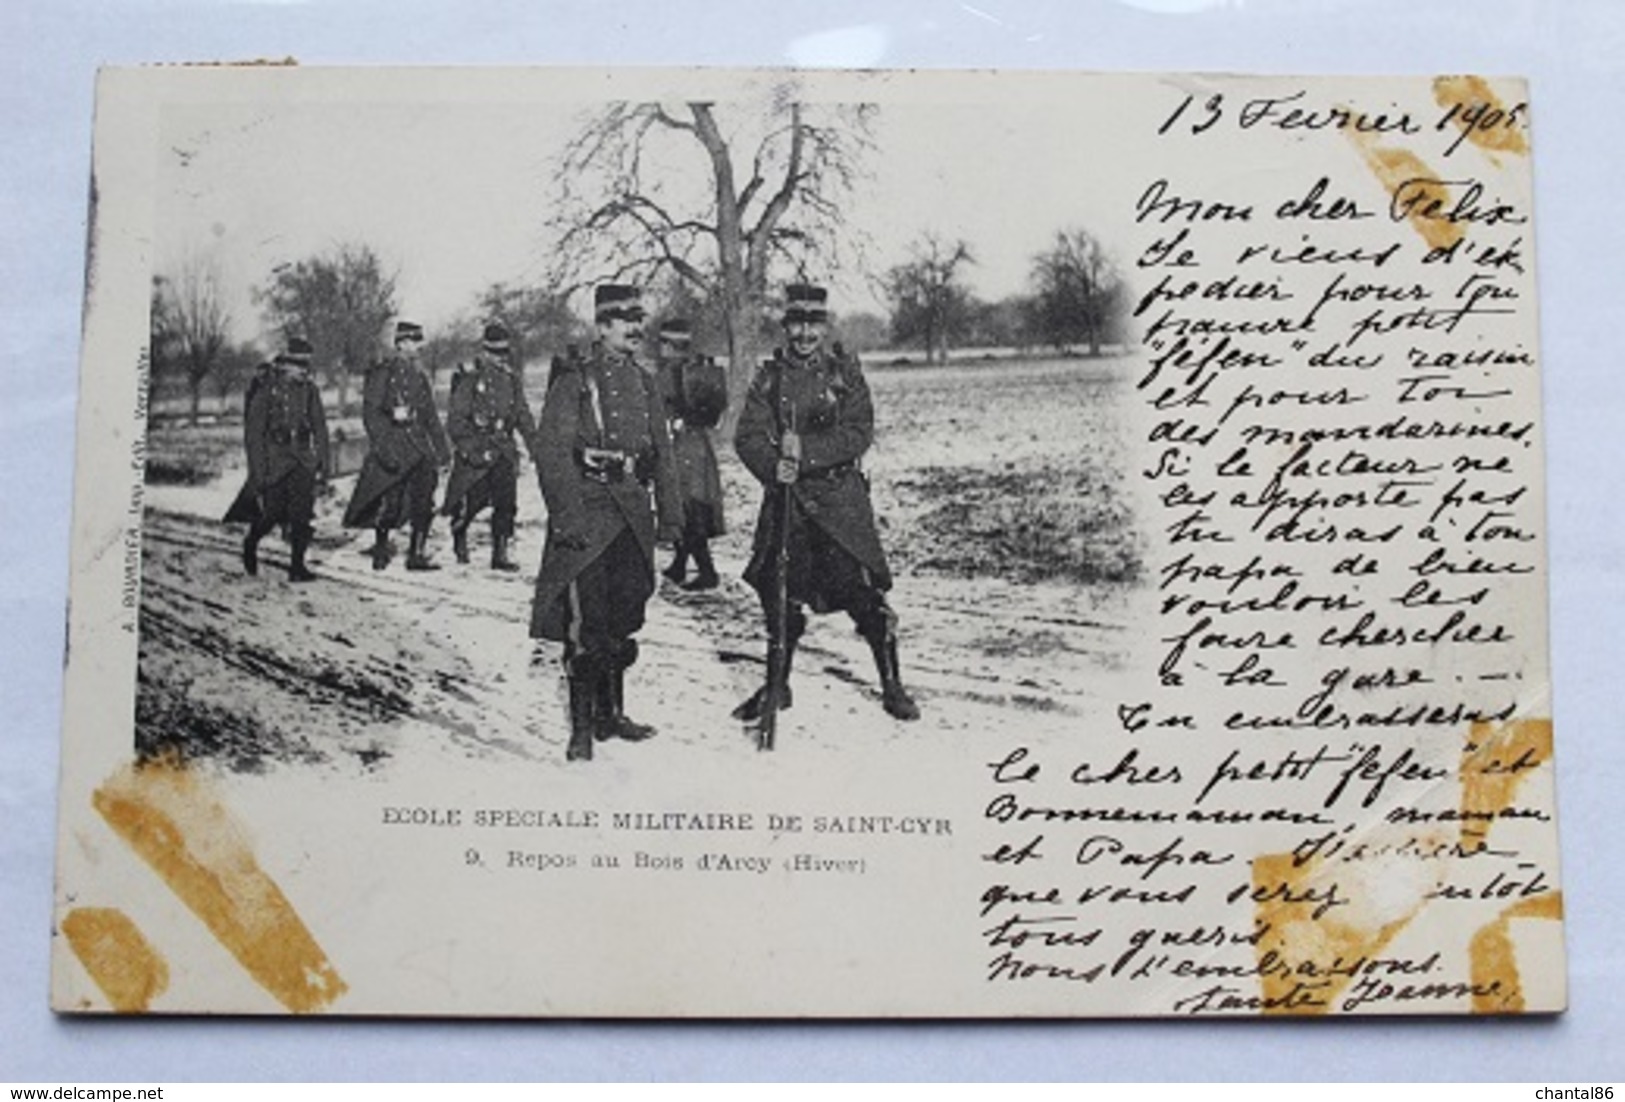 13 Fevrier 1905.
Mon cher Felix
Je viens d'ex-
pedier pour ton
pauvre petit
"féfen" du raisin
et pour toi
des mandarines.
Si le facteur ne
les apporte pas
tu diras à ton
papa de bien
vouloir les
faire chercher
à la gare. —
Tu embrasseras
le cher petit "fefen" et
Bonnemaman, maman
et Papa. J'espère
que vous serez intôt
tous gueris.
Nous t'embrassons.
tante Jeanne.
ECOLE SPECIALE MILITAIRE DE SAINT-CYR
9. Repos au Bois d'Arcy (Hiver)
A. BOURDIER, Imp.-Edit. Versailles
www.delcampe.net
chantal86